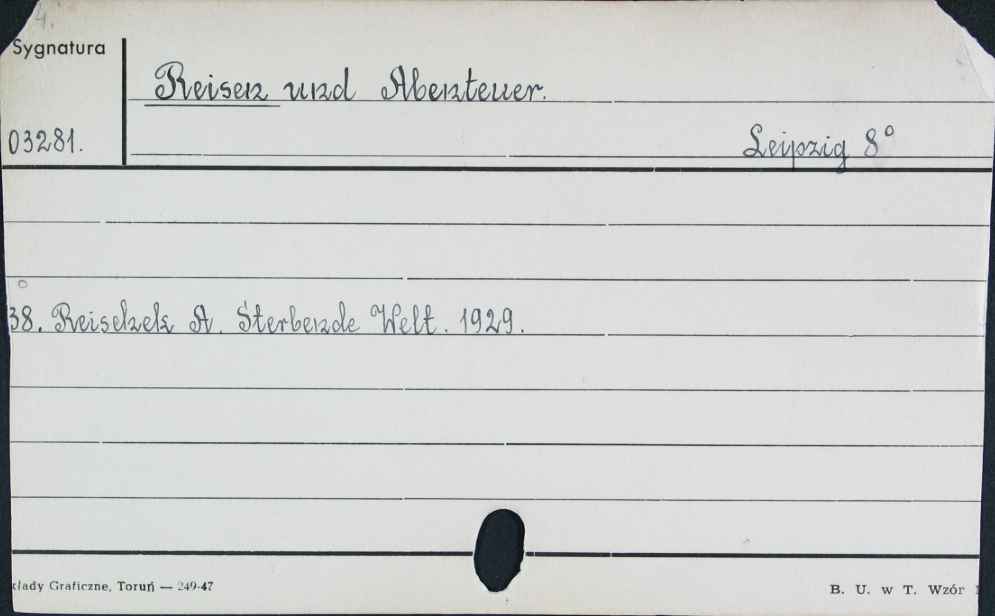 4.
Sygnatura
Reisen und Abenteuer.
03281.
Leipzig 8°
38. Reischek A. Sterbende Welt. 1929.
kłady Graficzne, Toruń — 249-47
B. U. w T. Wzór